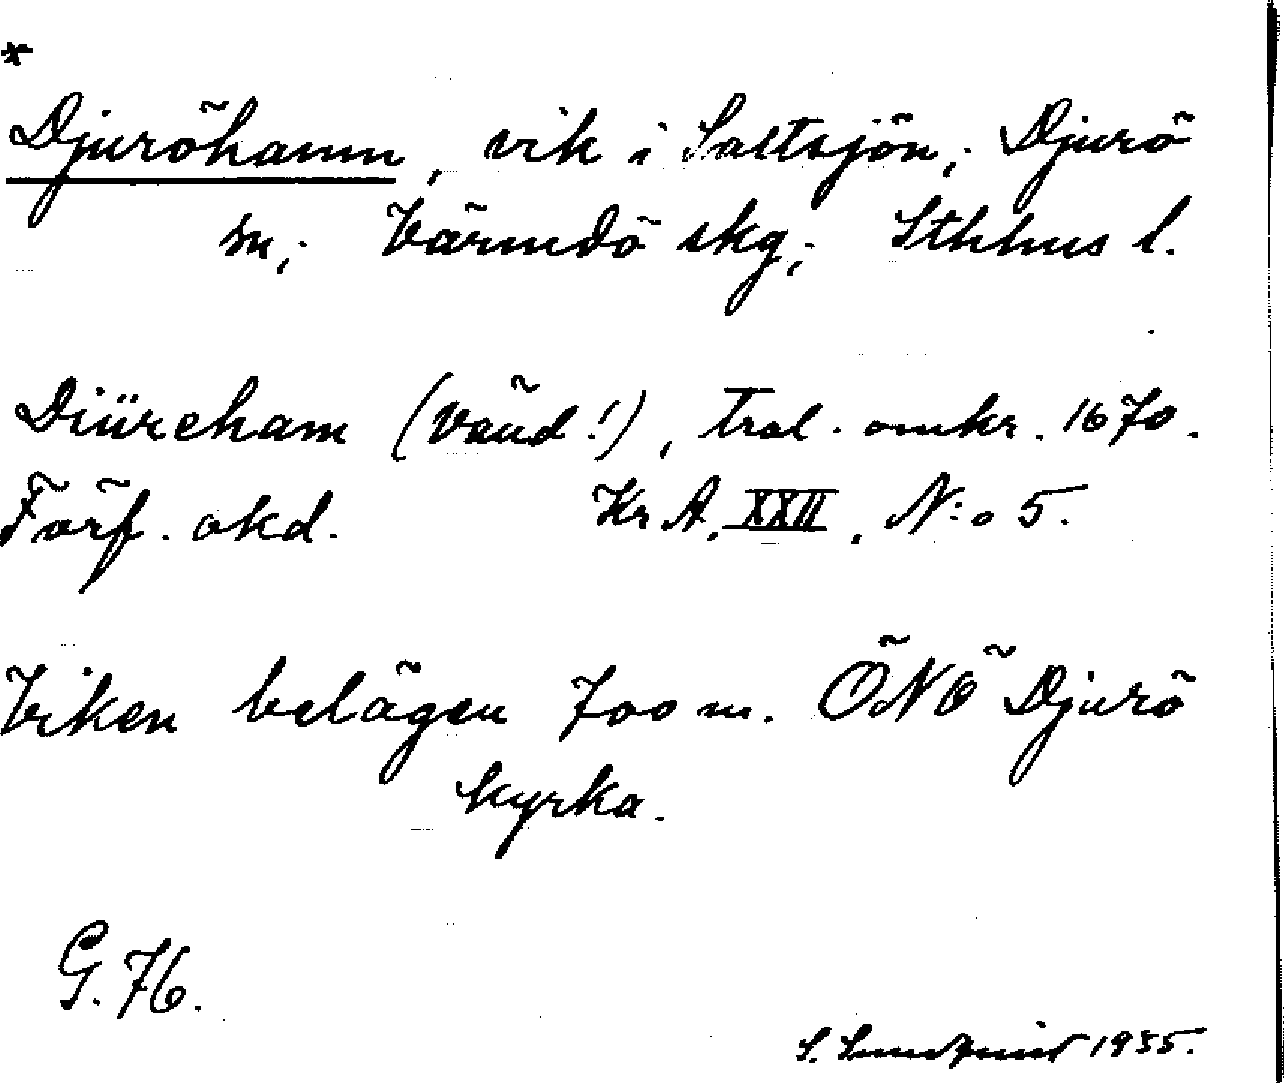 *
Djuröhamn, vik i Saltsjön; Djurö
sn; Värmdö skg; Sthlms l.
Diüreham (vaüd!), trol. omkr. 1670.
Förf. okd. Kr A, XXII, N:o 5.
Viken belägen 700 m. ÖNÖ Djurö
kyrka.
G. 76.
S. Sundquist 1935.